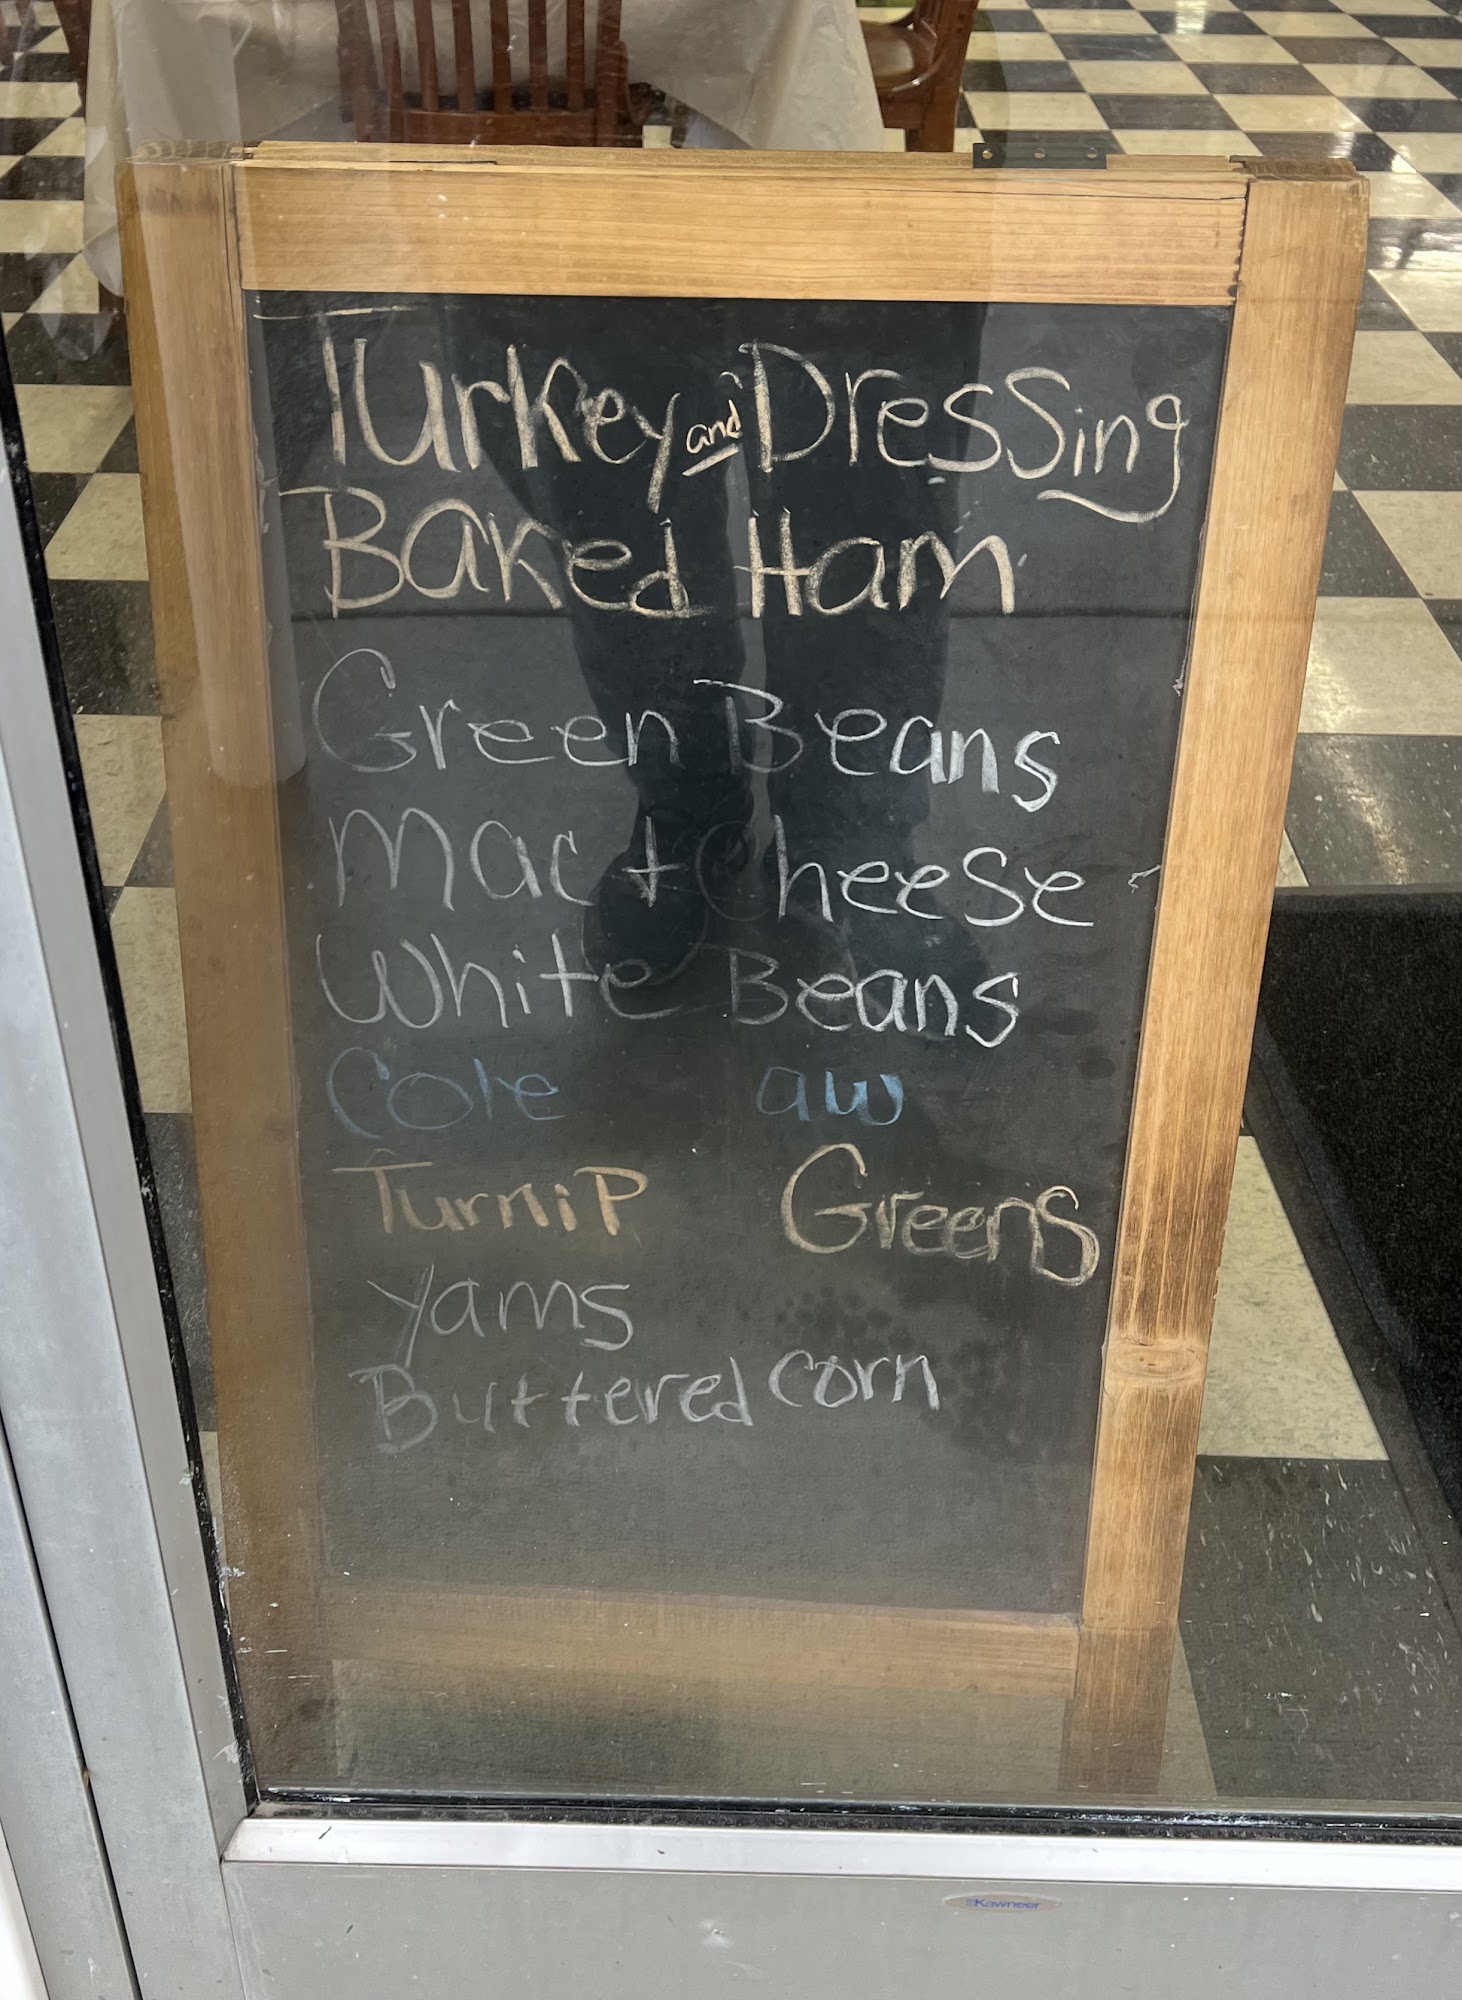 Turkey and Dressing
Baked Ham
Green Beans
Mac + Cheese
White Beans
Cole aw
Turnip Greens
Yams
Buttered Corn
Kawneer